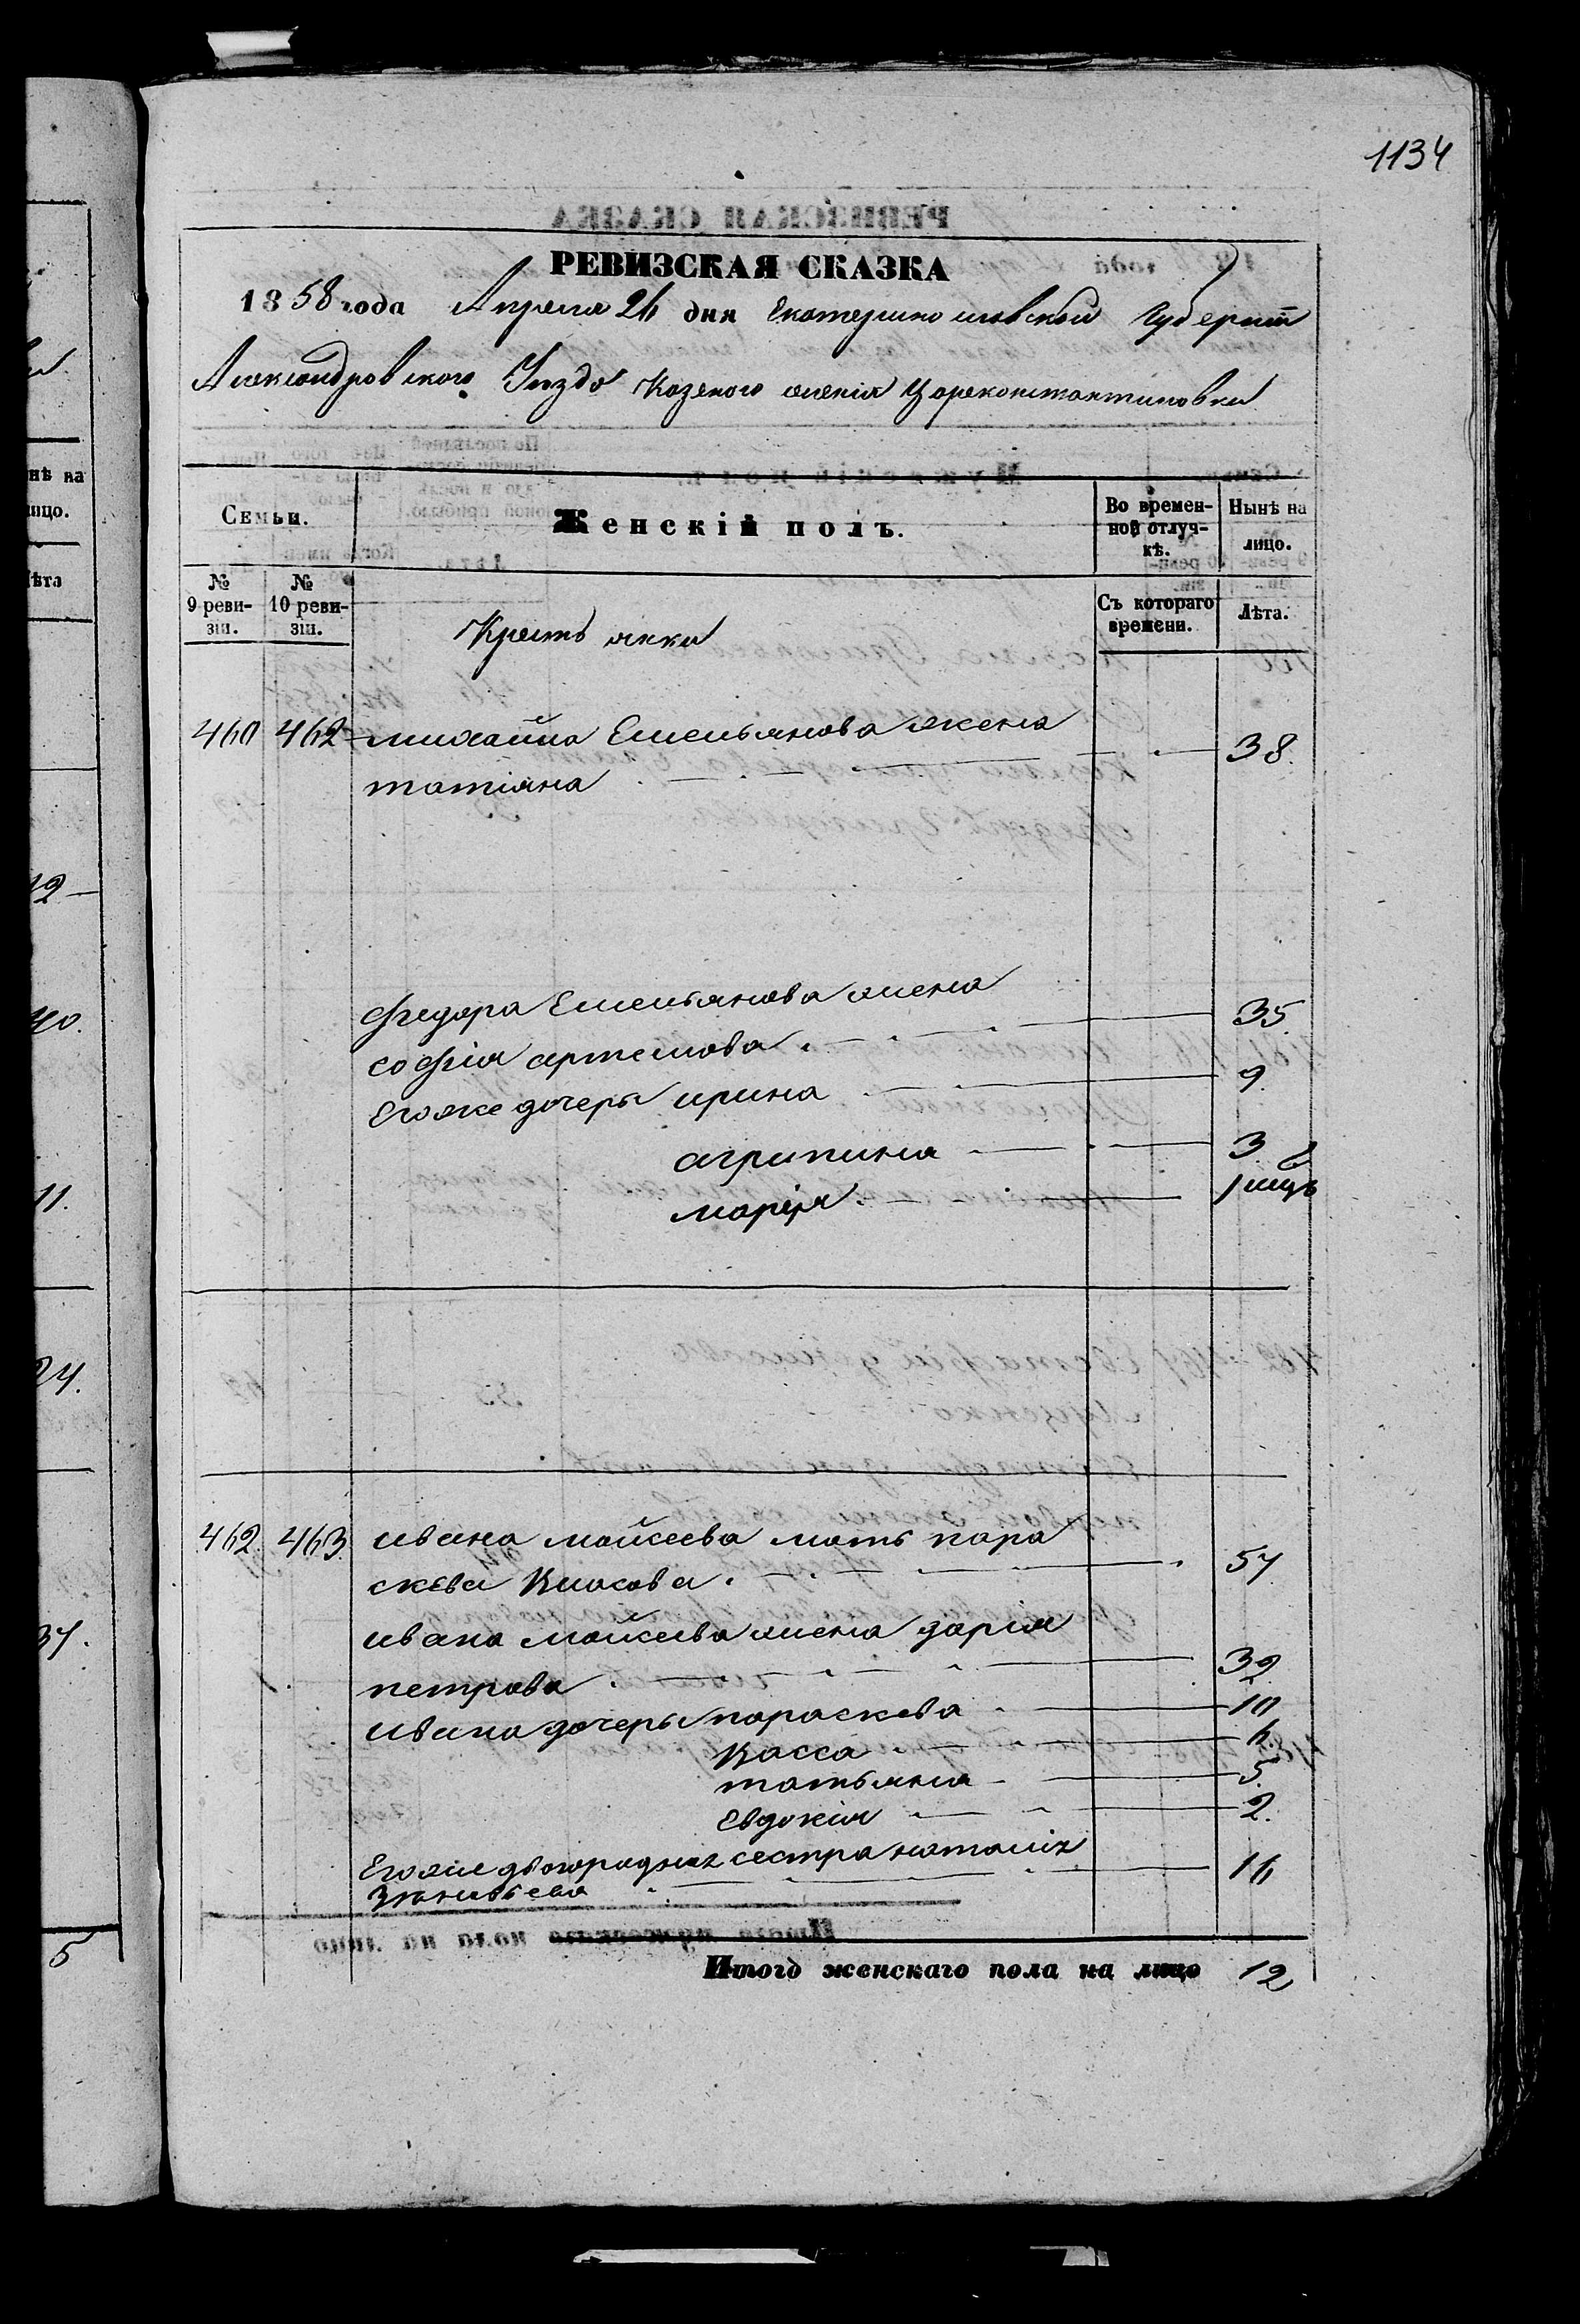 1134
РЕВИЗСКАЯ СКАЗКА
1858 года Апреля 26 дня Екатеринославской Губерніи
Александровского Уезда Казеного имения Цареконстантиновки
Семьи.
Женскій полъ.
Во времен-
ной отлуч-
кѣ.
Нынѣ на
лицо.
№
9 реви-
зіи.
№
10 реви-
зіи.
Съ котораго
времени.
Лѣта.
Крестьянки
460 462 михайла Емельянова жена
татіяна 38.
федора Емельянова жена
софія артемова 35.
Егоже дочери ирина 9.
агрипина 3
марія 1 мцъ
462. 463. ивана мойсеева мать пара
скева Власова 57
ивана мойсеева жена дарія
петрова 39
ивана дочери параскева 10
Васса 6.
татьяна 5.
Евдокія 2.
Егоже двоюродная сестра наталія
16
Итого женскаго пола на лицо 12
нѣ на
ицо.
ѣта
12
40.
11.
24.
37.
5